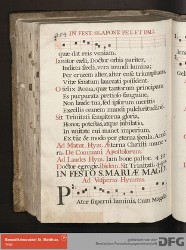 IN FEST. S. APOST. PET. ET PAUL
quæ dat reis veniam.
Ianitor cœli, Doctor orbis pariter,
Iudices sæcli, vera mundi lumina:
Per crucem alter, alter ense triumphans,
Vitæ senatum laureati possident.
O felix Roma, quæ tantorum principum
Es purpurata pretioso sanguine,
Non laude tua, sed ipsorum meritis
Excellis omnem mundi pulchritudinem.
Sit Trinitati sempiterna gloria,
Honor, potestas, atque iubilatio,
In unitate cui manet imperium,
Ex tunc & modo per æterna sæcula. Amen.
Ad Matut. Hym. Æterna Christi munera
De Communi Apostolorum.
Ad Laudes Hym. Iam bone pastor.
Doctor egregie. Sit Trinitati
IN FESTO S. MARIÆ MAGD
Ad Vesperas Hymnus.
Pater superni luminis, Cum Magda
DFG